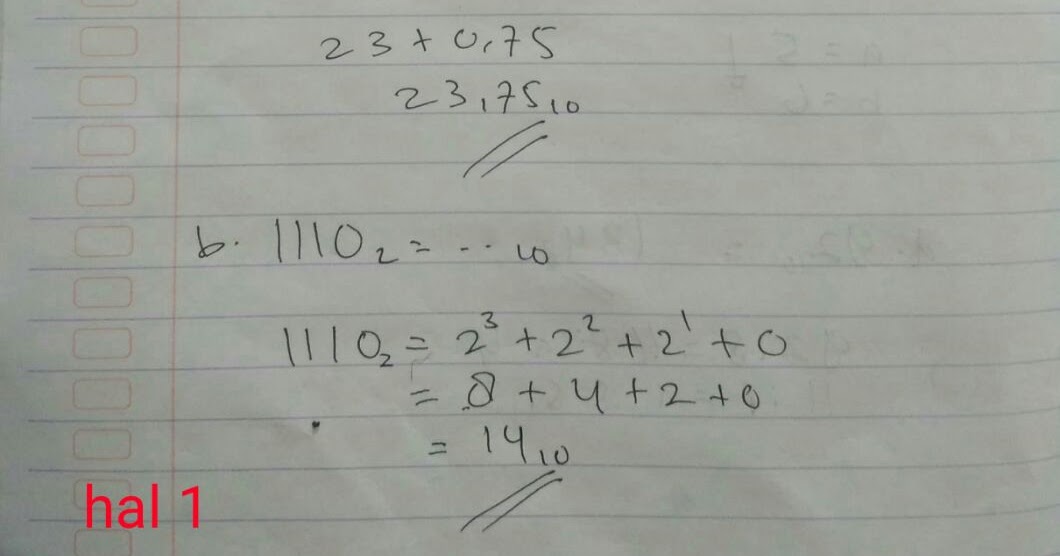 23 + 0,75
23,75₁₀
b. 1110₂ = ... ₁₀
1110₂ = 2³ + 2² + 2¹ + 0
= 8 + 4 + 2 + 0
= 14₁₀
hal 1